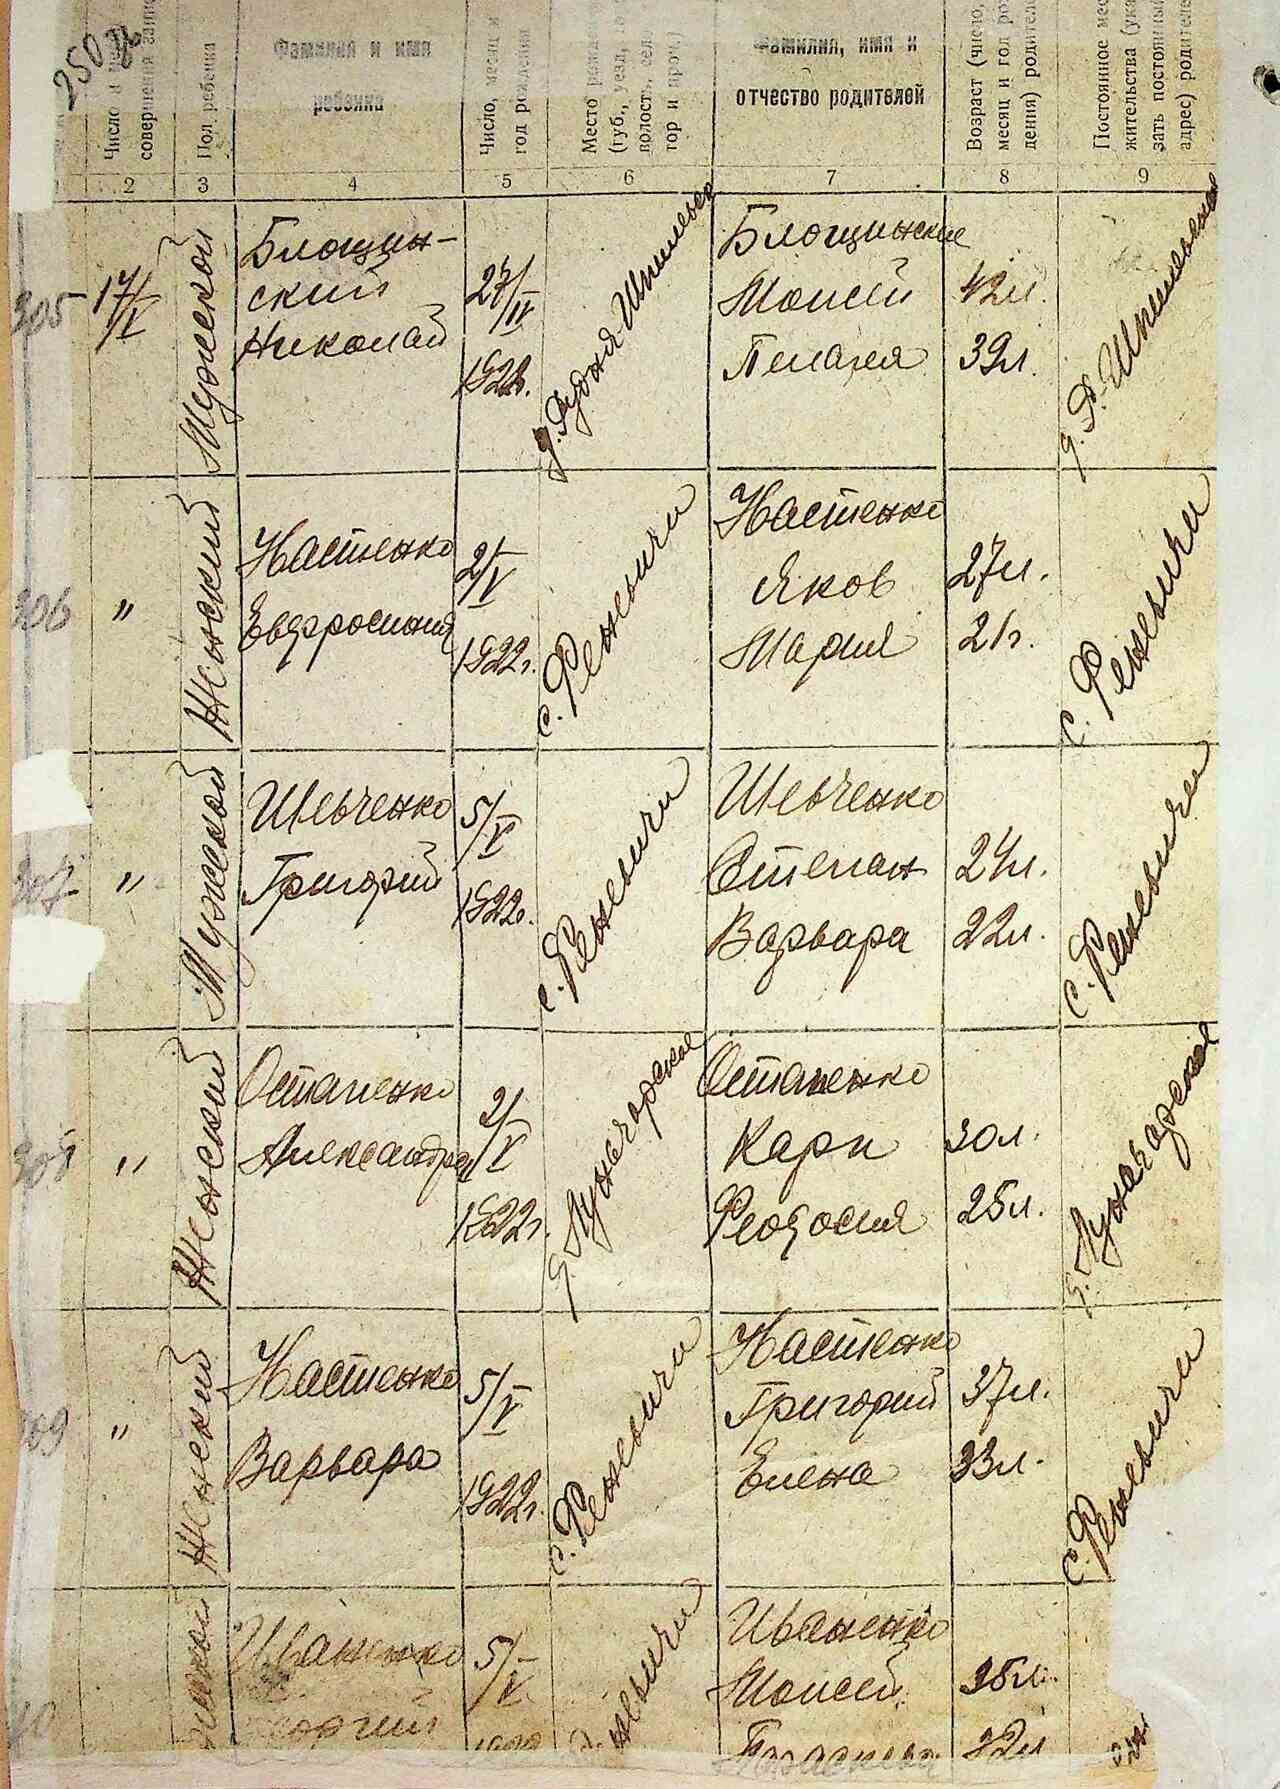 250
Число и
совершения запис
Пол ребенка
Фамилия и имя
ребенка
Число, месяц и
год рождения
Место рожде
(губ., уезд,
волость, село
тор и проч.)
Фамилия, имя и
отчество родителей
Возраст (число,
месяц и год ро
дения) родител
Постоянное мес
жительства (ука
зать постоянный
адрес) родителе
2 3 4 5 6 7 8 9
305
17/V
Мужской
Блощин-
ский
Николай
27/IV
1922г.
д. Рудня Шпилевск
Блощинские
Моисей 42л.
Пелагея 39л.
д. Р. Шпилевская
306
"
Женский
Настенко
Евфросиния
2/V
1922г.
с. Реневичи
Настенко
Яков 27л.
Мария 21г.
с. Реневичи
307
"
Мужской
Шевченко
Григорий
5/V
1922г.
с. Реневичи
Шевченко
Степан 24л.
Варвара 22л.
с. Реневичи
308
"
Женский
Остапенко
Александра
2/V
1922г.
Остапенко
Карп 30л.
Феодосия 25л.
309
"
Женский
Настенко
Варвара
5/V
1922г.
с. Реневичи
Настенко
Григорий 37л.
Елена 33л.
с. Реневичи
10
Иваненко
5/V
Иваненко
Моисей 35л.
Параскева 32л